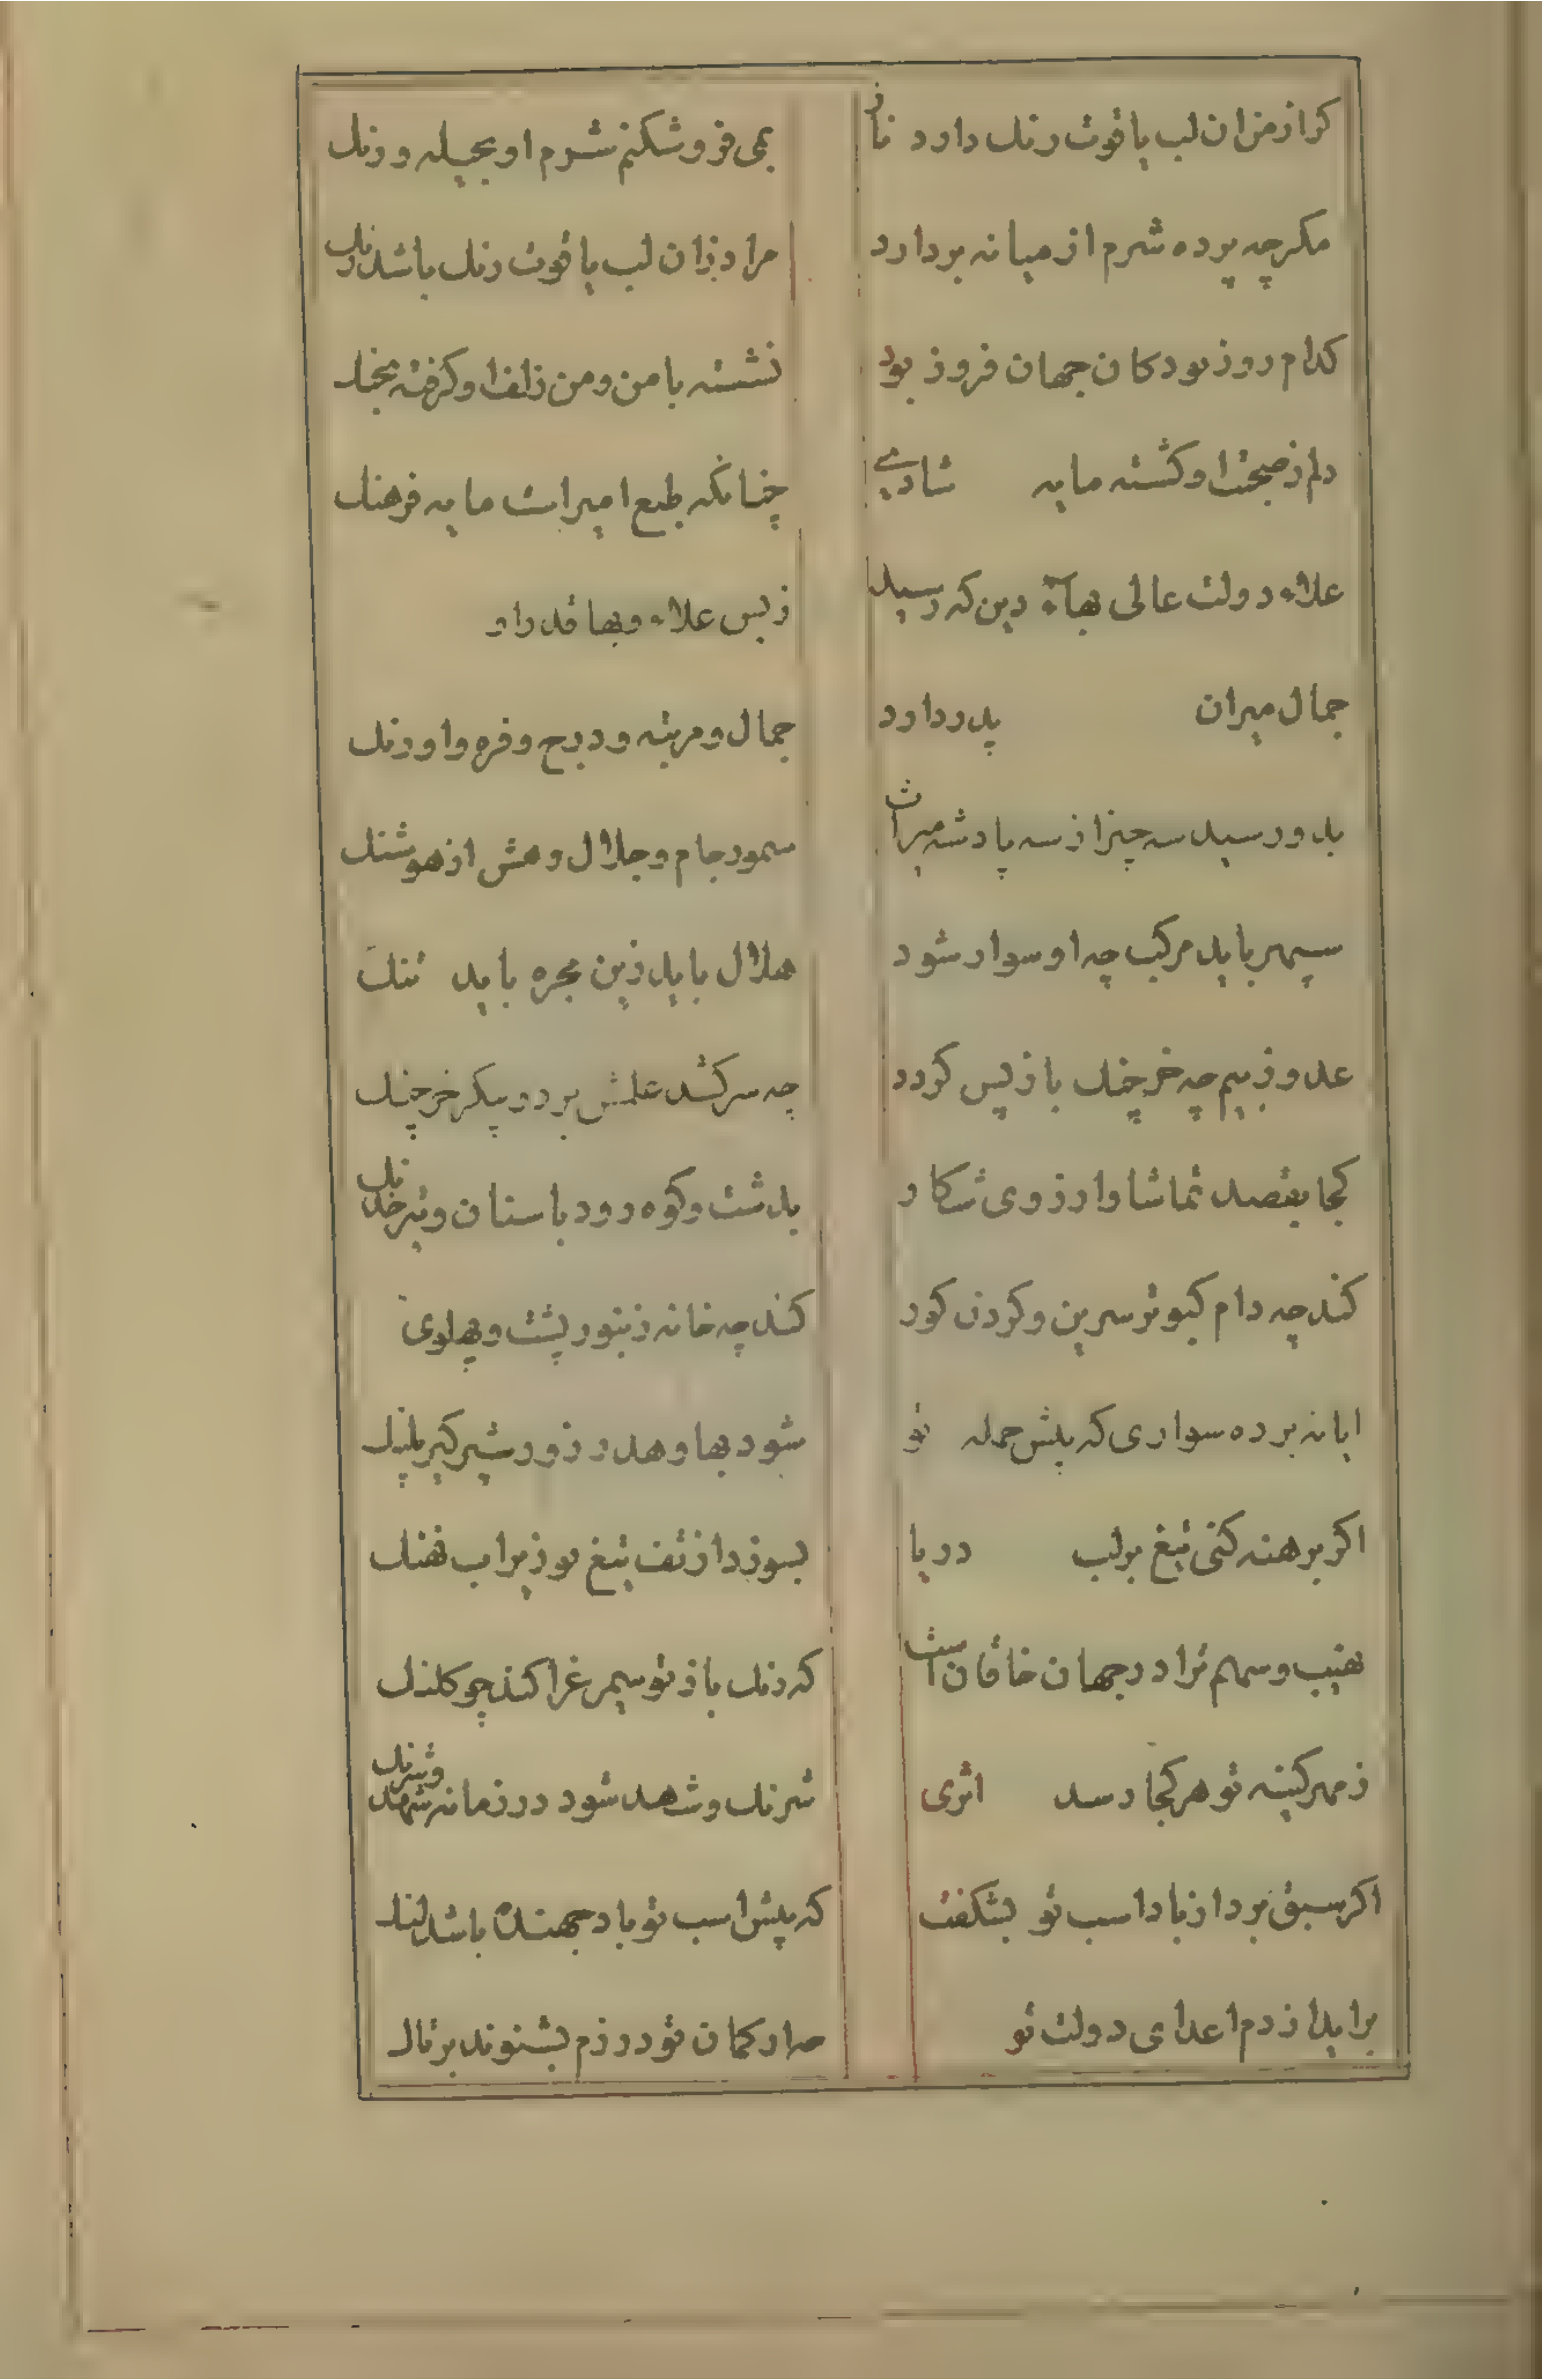 کرا ز من ان لب یاقوت رنک دارد ناز
بمی فرو شکنم شرم او بحیله و رنک
مکر چه پرده شرم از میانه بردارد
مرا دزان لب یاقوت رنک باشد رنک
کدام روز بود کان جهان فروز بود
نشسته با من و من زلف او کرفته بچنک
دلم ز صحبت او کشته مایه شادی
چنانکه طبع امیر است مایه فرهنک
علاء دولت عالی بهاء دین که رسید
ز بس علاء و بها قدر او
جمال میران پدر دارد
جمال و مرتبه و درج و فره و اورنک
بدو رسید سه چیز از سه پادشه میراث
سمور جام و جلال و هش از هوشنک
سپهر باید مرکب چه او سوار شود
هلال باید زین مجره باید تنک
عدو ز بیم چه خرچنک باز پس کردد
چه سر کشد علمش بر دو پیکر خرچنک
کجا بقصد تماشا و ارزوی شکار
بدشت و کوه رود باستان و تیر خدنک
کند چه دام کبوتر سرین و کردن کور
کند چه خانه زنبور پشت و پهلوی
ایا نبرده سواری که پیش حمله تو
شود بها و هدر زور شیر کیر پلنک
اکر برهنه کنی تیغ بر لب دریا
بسوزد از تف تیغ تو زیر اب نهنک
نهیب و سهم ترا در جهان خاقان است
که رنک باز تو سیمرغ را کند چو کلنک
ز مهر کینه تو هر کجا رسد اثری
شرنک و شهد شود در زمانه شهد و شرنک
اکر سبق برد از باد اسب تو بشکفت
که پیش اسب تو باد جهنده باشد لنک
براید از دم اعدای دولت تو
صدار کمان تو در رزم بشنوند بر نال